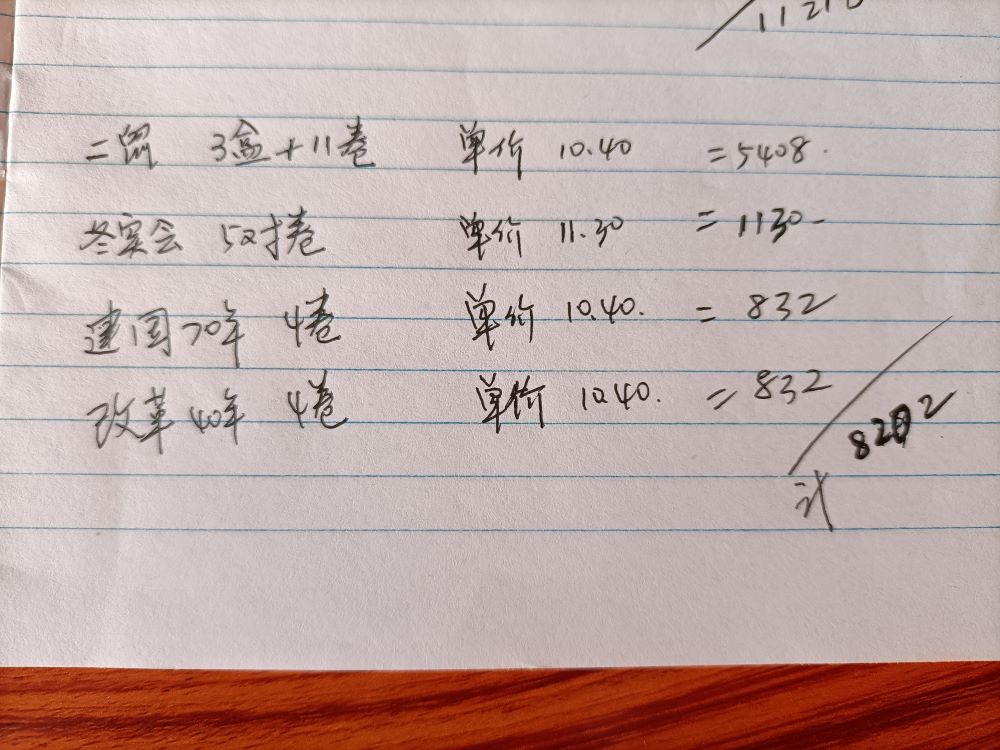 11210
二鼠 3盒+11卷 单价 10.40 =5408.
冬奥会 5对卷 单价 11.30 =1130-
建国70年 4卷 单价 10.40. = 832
改革40年 4卷 单价 10.40. = 832
计 8202